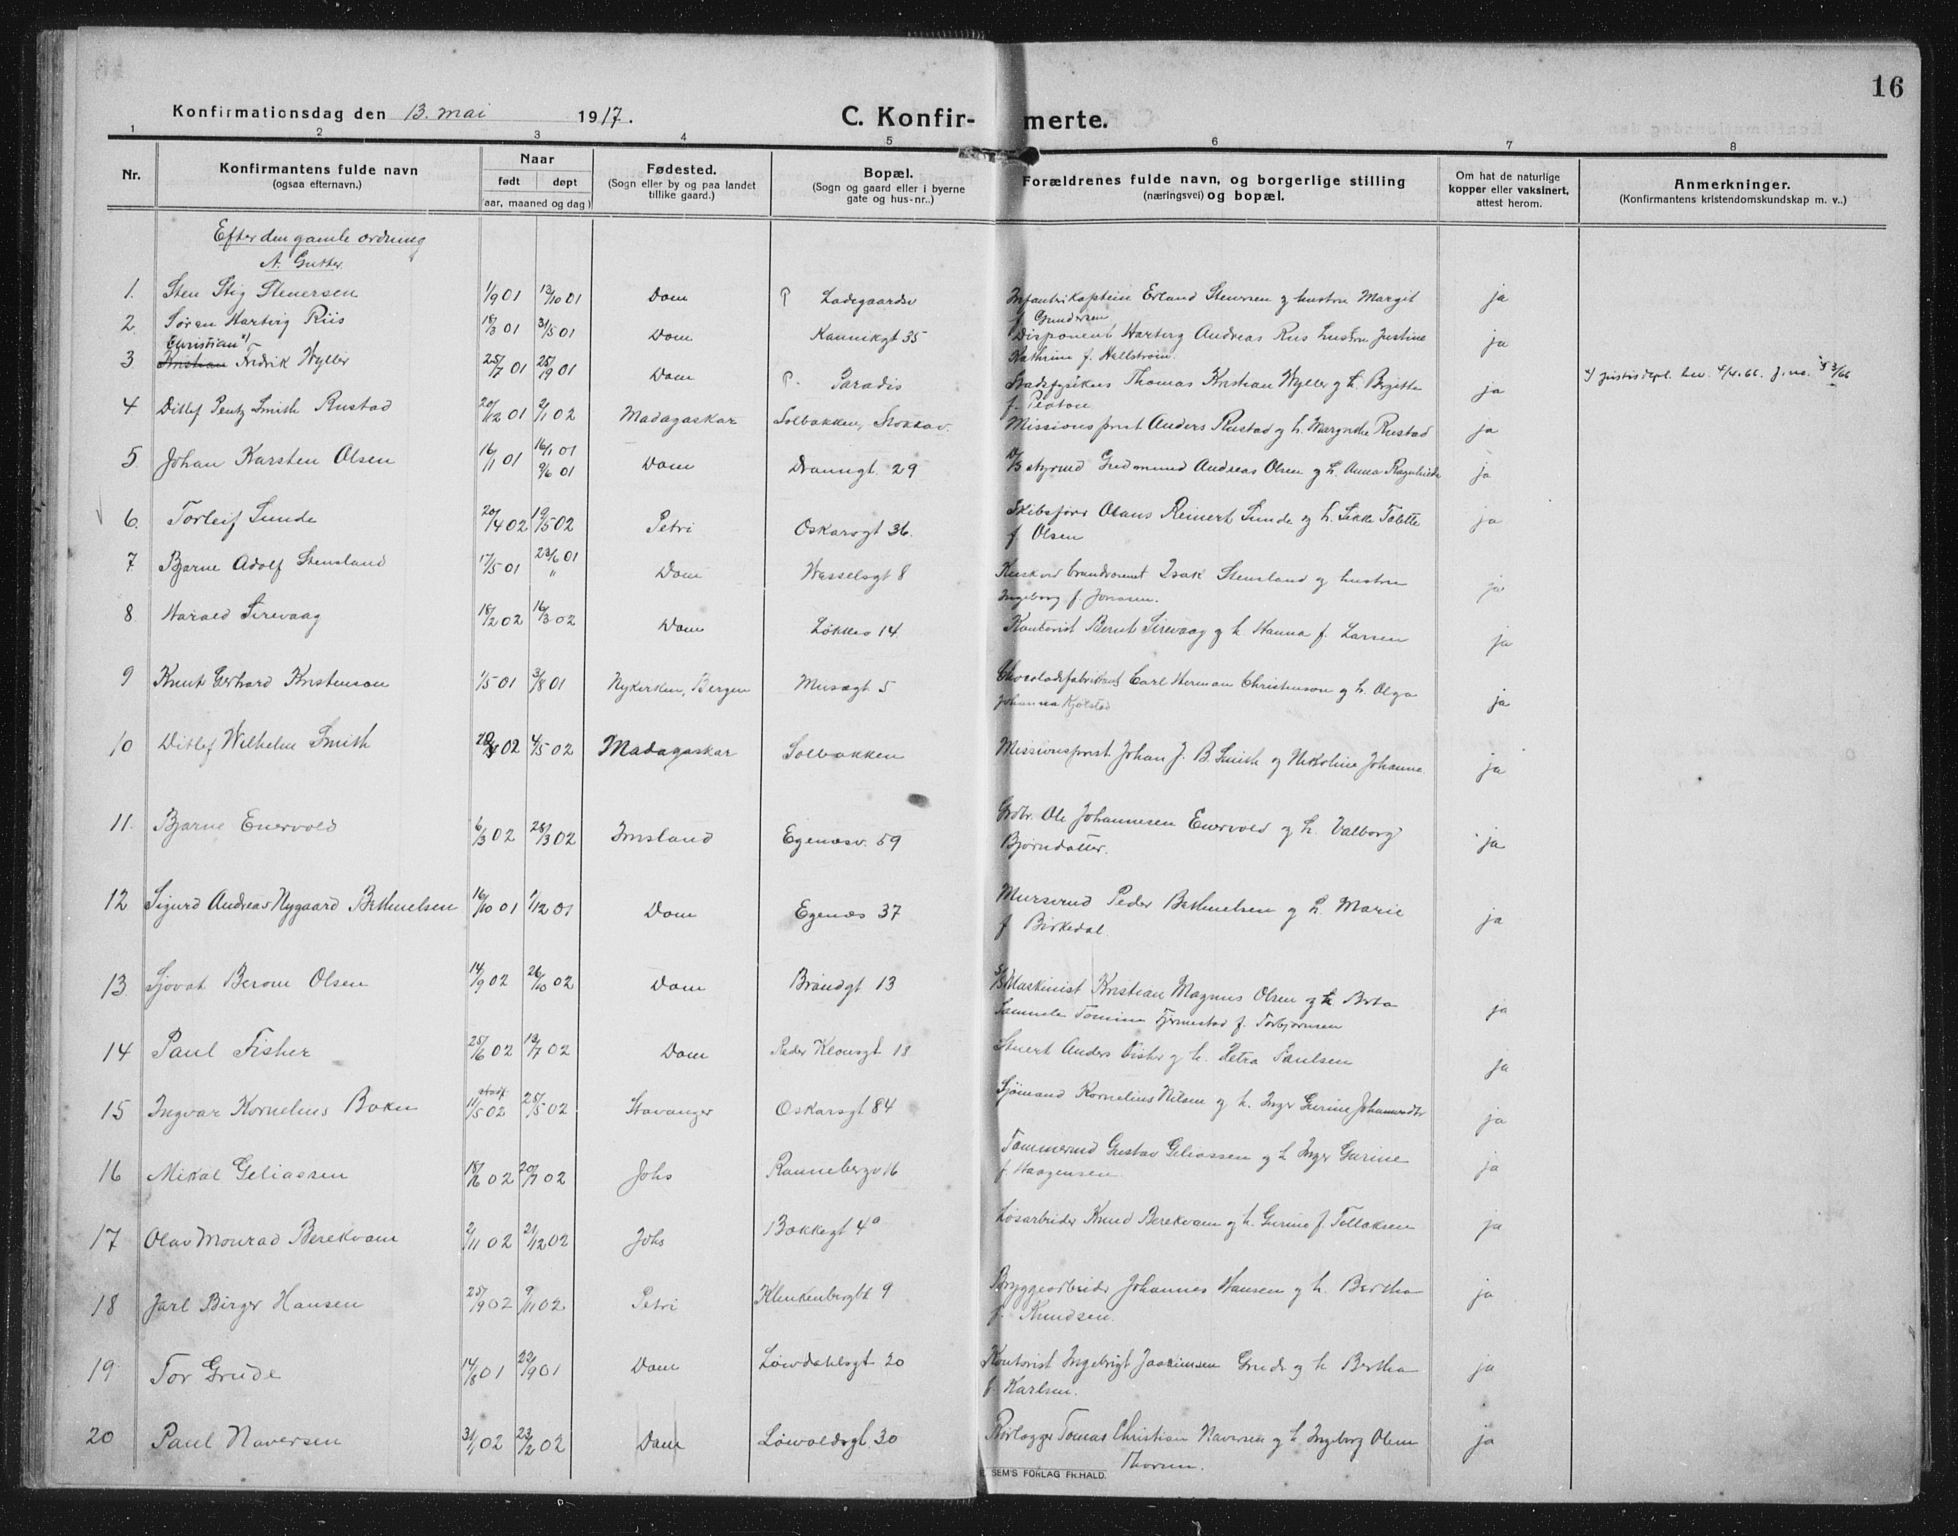 16
Konfirmationsdag den 13. mai 1917.
C. Konfirmerte.
1 2 3 4 5 6 7 8
Nr.
Konfirmantens fulde navn
(ogsaa efternavn.)
Naar
født døpt
(aar, maaned og dag)
Fødested.
(Sogn eller by og paa landet
tillike gaard.)
Bopæl.
(Sogn og gaard eller i byerne
gate og hus-nr..)
Forældrenes fulde navn, og borgerlige stilling
(næringsvei) og bopæl.
Om hat de naturlige
kopper eller vaksinert,
attest herom.
Anmerkninger.
(Konfirmantens kristendomskundskap m. v..)
Efter den gamle ordning
A. Gutter.
1. Sten Stig Stenersen 1/9 01 13/10 01 Dom Ladegaardsv Infanterikaptein Erland Stenersen og hustru Margit ja
f. Gundersen
2. Søren Hartvig Riis 18/3 01 31/5 01 Dom Kannikgt 35 Disponent Hartvig Andreas Riis hustru Justine ja
Kathrine f. Hellstrøm.
Christian x)
3 Kristian Fredrik Wyller 25/7 01 25/9 01 Dom Paradis Stadsfysikus Thomas Kristian Wyller og h. Birgitte ja
f. Ploton
4 Ditlef Pentz Smith Rustad 20/12 01 2/1 02 Madagaskar Solbakken, Stokkav. Missionsprest Anders Rustad og h. Margrethe Rustad ja
5. Johan Karsten Olsen 16/1 01 16/1 01 Dom Dronngt. 29 D/B styrmd Gudmund Andreas Olsen og h. Anna Ragnhilda ja
9/6 01
6. Torleif Sunde 20/4 02 19/5 02 Petri Oskarsgt 36. Skibsfører Olaus Reinert Sunde og h. Sikke Tolette ja
f Olsen
7. Bjarne Adolf Stensland 17/5 01 23/6 01 Dom Wesselsgt 8 Kusk ved brandvæsenet Isak Stensland og hustru ja
"
Ingeborg f. Jonasen.
8 Harald Sirevaag 18/2 02 16/3 02 Dom Løkkev 14 Kontorist Bernt Sirevaag og h. Hanna f. Larsen ja
9 Knut Gerhard Kristenson 1/5 01 3/8 01 Nykirken, Bergen Musegt 5 Chocoladefabrikant Carl Herman Christenson og h. Olga ja
Johanna Kjølstad
10 Ditlef Wilhelm Smith 20/4 02 4/5 02 Madagaskar Solbakken Missionsprest Johan J. B. Smith og Nikoline Johanne ja
11. Bjarne Enervold 6/3 02 28/3 02 Imsland Egenæsv. 59 Grdbr. Ole Johannesen Enervold og h. Valborg ja
Bjørndatter.
12 Sigurd Andreas Nygaard Bethuelsen 16/10 01 1/12 01 Dom Egenæs 37 Mursvend Peder Bethuelsen og h. Marie ja
f Birkedal.
13. Sjovat Berom Olsen 14/9 02 26/10 02 Dom Brandgt 13 S/B Maskinist Kristian Magnus Olsen og h Berta ja
Samuele Tomine Fjermestad f. Torbjørnsen
14 Paul Fisher 25/6 02 13/7 02 Dom Peder Klowsgt 18 Stuert Anders Fisher og h. Petra Paulsen ja
15 Ingvar Kornelius Boken 11/5 02 25/5 02 Stavanger Oskarsgt 84 Sjømand Kornelius Nilsen og h. Inger Gurine Johannesdtr ja
16 Mikal Geliassen 18/6 02 20/7 02 Johs Rannebergv 16 Tømmermd Gustav Geliassen og h Inger Gurine ja
f. Haagensen
17 Olav Monrad Berekvam 2/11 02 21/12 02 Johs Bakkegt 4a Løsarbeider Knud Berekvam og h. Gurine f. Tollaksen ja
18 Jarl Birger Hansen 25/9 02 9/11 02 Petri Klinkenberggt 9 Bryggearbeider Johannes Hansen og h. Bertha ja
f. Knudsen.
19 Tor Grude 14/8 01 22/9 01 Dom Løvdahlsgt 20 Kontorist Ingebrigt Joakimsen Grude og h Bertha ja
f. Karlsen.
20 Paul Naversen 31/1 02 23/2 02 Dom Løwoldsgt 30 Rørlægger Tomas Christian Naversen og h Ingeborg Oline ja
Thorsen.
x) justisdepl. bev. 4/4.66. j.no.
SEM'S FORLAG FR.HALD.